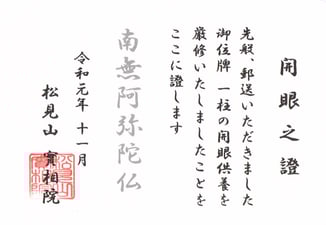 開眼之證
先般、郵送いただきました
御位牌 一柱の開眼供養を
厳修いたしましたことを
ここに證します
南無阿弥陀仏
令和元年 十一月
松見山 實相院